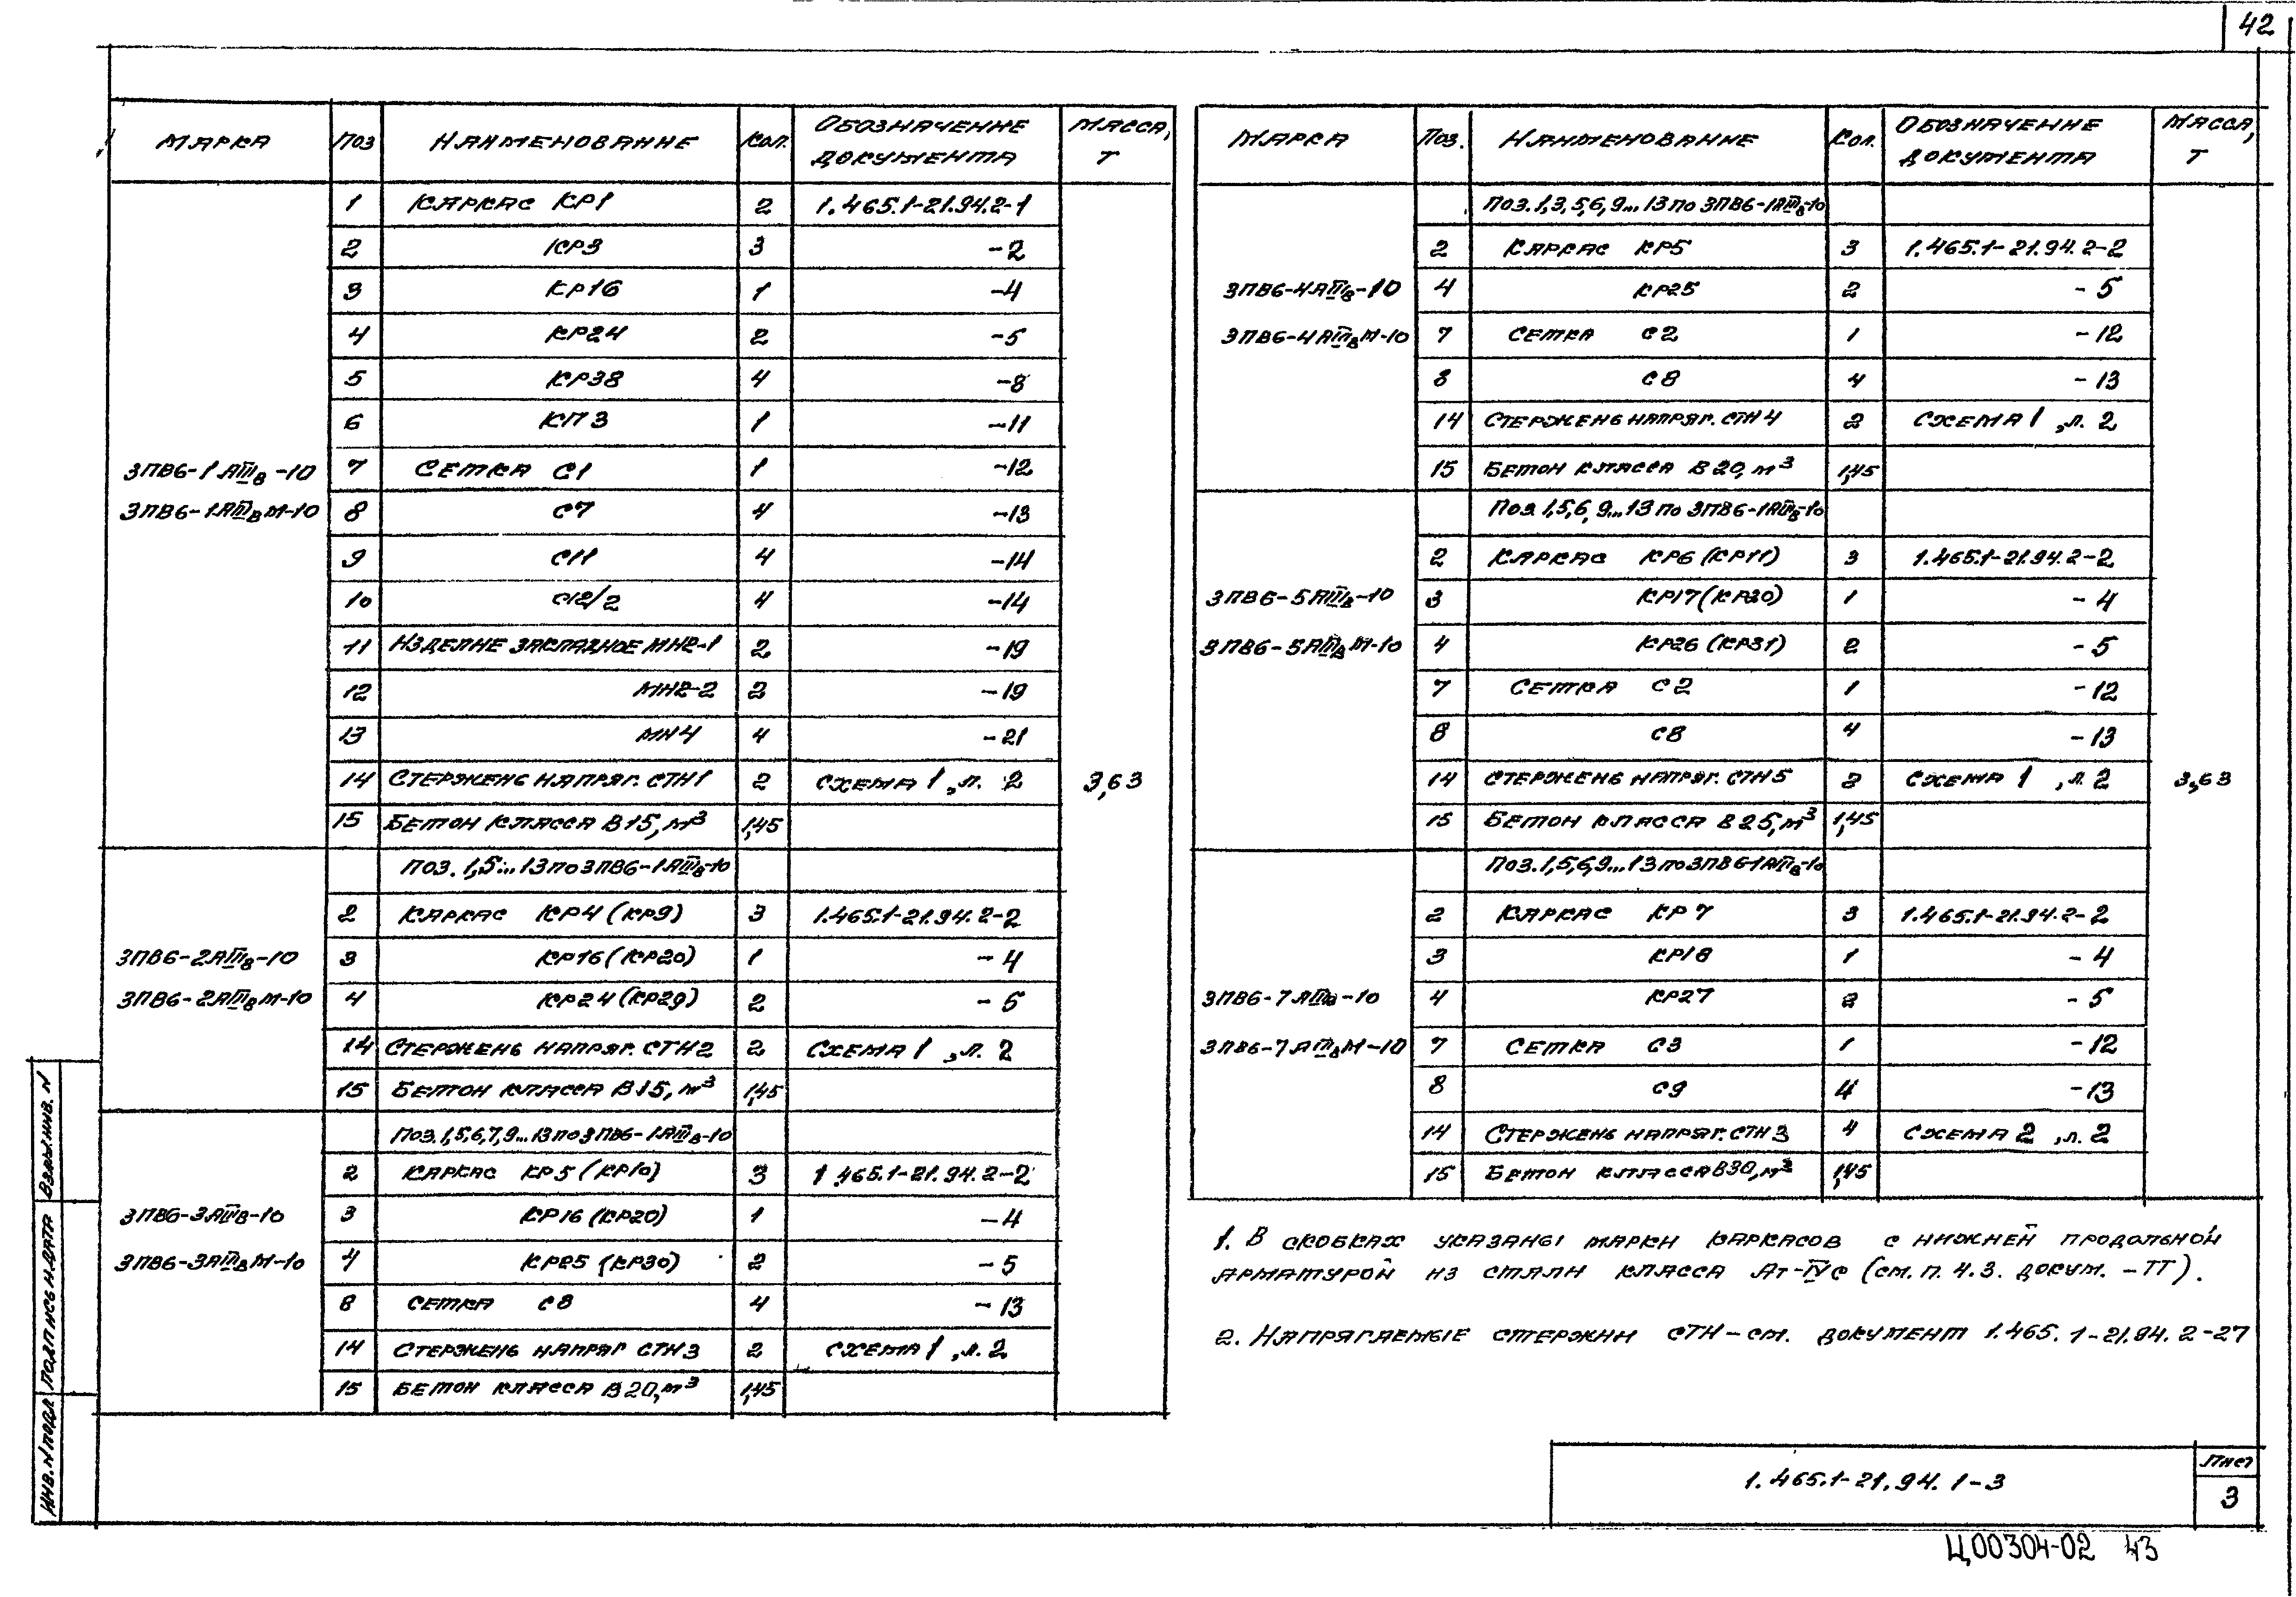 42
МАРКА ПОЗ НАИМЕНОВАНИЕ КОЛ. ОБОЗНАЧЕНИЕ ДОКУМЕНТА МАССА, Т
1 КАРКАС КР1 2 1.465.1-21.94.2-1
2 КР3 3 -2
3 КР16 1 -4
4 КР24 2 -5
5 КР38 4 -8
6 КП3 1 -11
3ПВ6-1АIIIв-10 7 СЕТКА С1 1 -12
3ПВ6-1АIIIвМ-10 8 С7 4 -13
9 С11 4 -14
10 С12/2 4 -14
11 ИЗДЕЛИЕ ЗАКЛАДНОЕ МН2-1 2 -19
12 МН2-2 2 -19
13 МН4 4 -21
14 СТЕРЖЕНЬ НАПРЯГ. СТН1 2 СХЕМА 1, Л. 2 3,63
15 БЕТОН КЛАССА В15, М³ 1,45
ПОЗ. 1,5...13 ПО 3ПВ6-1АIIIв-10
2 КАРКАС КР4 (КР9) 3 1.465.1-21.94.2-2
3ПВ6-2АIIIв-10 3 КР16 (КР20) 1 -4
3ПВ6-2АIIIвМ-10 4 КР24 (КР29) 2 -5
14 СТЕРЖЕНЬ НАПРЯГ. СТН2 2 СХЕМА 1, Л. 2
15 БЕТОН КЛАССА В15, М³ 1,45
ПОЗ. 1,5,6,7,9...13 ПО 3ПВ6-1АIIIв-10
2 КАРКАС КР5 (КР10) 3 1.465.1-21.94.2-2
3ПВ6-3АIIIв-10 3 КР16 (КР20) 1 -4
3ПВ6-3АIIIвМ-10 4 КР25 (КР30) 2 -5
8 СЕТКА С8 4 -13
14 СТЕРЖЕНЬ НАПРЯГ СТН3 2 СХЕМА 1, Л. 2
15 БЕТОН КЛАССА В20, М³ 1,45
МАРКА ПОЗ. НАИМЕНОВАНИЕ КОЛ. ОБОЗНАЧЕНИЕ ДОКУМЕНТА МАССА, Т
ПОЗ. 1,3,5,6,9...13 ПО 3ПВ6-1АIIIв-10
2 КАРКАС КР5 3 1.465.1-21.94.2-2
3ПВ6-4АIIIв-10 4 КР25 2 -5
3ПВ6-4АIIIвМ-10 7 СЕТКА С2 1 -12
8 С8 4 -13
14 СТЕРЖЕНЬ НАПРЯГ. СТН4 2 СХЕМА 1, Л. 2
15 БЕТОН КЛАССА В20, М³ 1,45
ПОЗ. 1,5,6,9...13 ПО 3ПВ6-1АIIIв-10
2 КАРКАС КР6 (КР11) 3 1.465.1-21.94.2-2
3ПВ6-5АIIIв-10 3 КР17 (КР20) 1 -4
3ПВ6-5АIIIвМ-10 4 КР26 (КР31) 2 -5
7 СЕТКА С2 1 -12
8 С8 4 -13
14 СТЕРЖЕНЬ НАПРЯГ. СТН5 2 СХЕМА 1, Л. 2 3,63
15 БЕТОН КЛАССА В25, М³ 1,45
ПОЗ. 1,5,6,9...13 ПО 3ПВ6-1АIIIв-10
2 КАРКАС КР7 3 1.465.1-21.94.2-2
3 КР18 1 -4
3ПВ6-7АIIIв-10 4 КР27 2 -5
3ПВ6-7АIIIвМ-10 7 СЕТКА С3 1 -12
8 С9 4 -13
14 СТЕРЖЕНЬ НАПРЯГ. СТН3 4 СХЕМА 2, Л. 2
15 БЕТОН КЛАССА В30, М³ 1,45
1. В СКОБКАХ УКАЗАНЫ МАРКИ КАРКАСОВ С НИЖНЕЙ ПРОДОЛЬНОЙ
АРМАТУРОЙ ИЗ СТАЛИ КЛАССА АТ-IVС (СМ. П. 4.3. ДОКУМ. -ТТ).
2. НАПРЯГАЕМЫЕ СТЕРЖНИ СТН-СМ. ДОКУМЕНТ 1.465.1-21.94.2-27
ИНВ. N ПОДЛ ПОДПИСЬ И ДАТА ВЗАМ. ИНВ. N
1.465.1-21.94.1-3
ЛИСТ
3
Ц00304-02 43